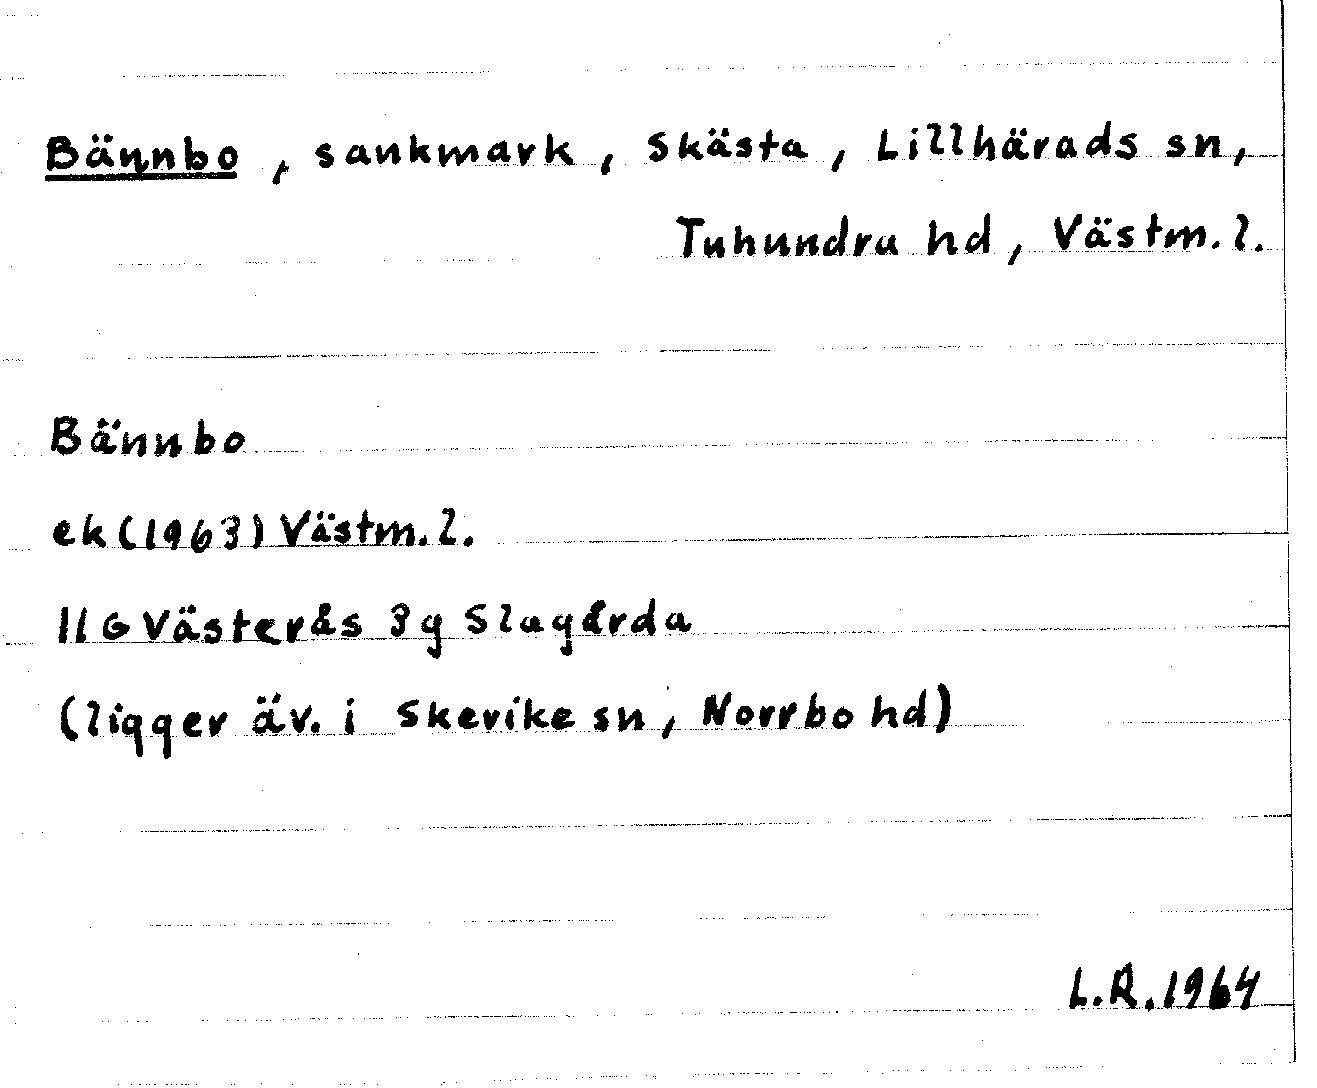 Bännbo, sankmark, Skästa, Lillhärads sn,
Tuhundra hd, Västm. l.
Bännbo
ek (1963) Västm. l.
11 G Västerås 3g Slagårda
(ligger äv. i Skerike sn, Norrbo hd)
L.R. 1964